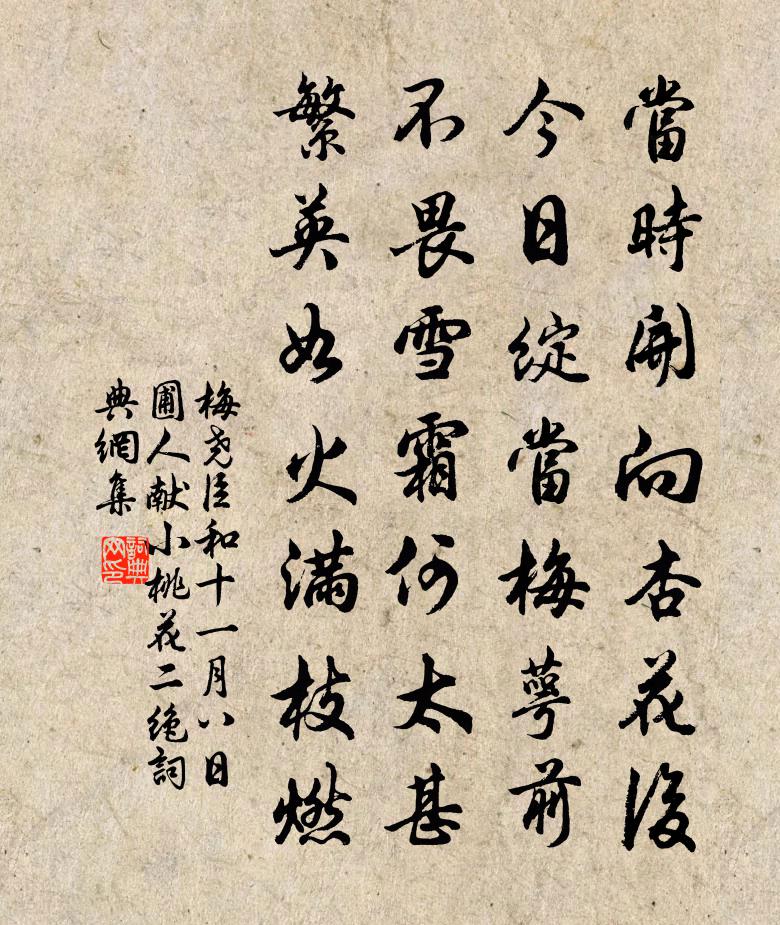 當時開向杏花後
今日綻當梅萼前
不畏雪霜何太甚
繁英如火滿枝燃
梅尧臣和十一月八日
圃人献小桃花二绝詞
典網集
詞典
网印